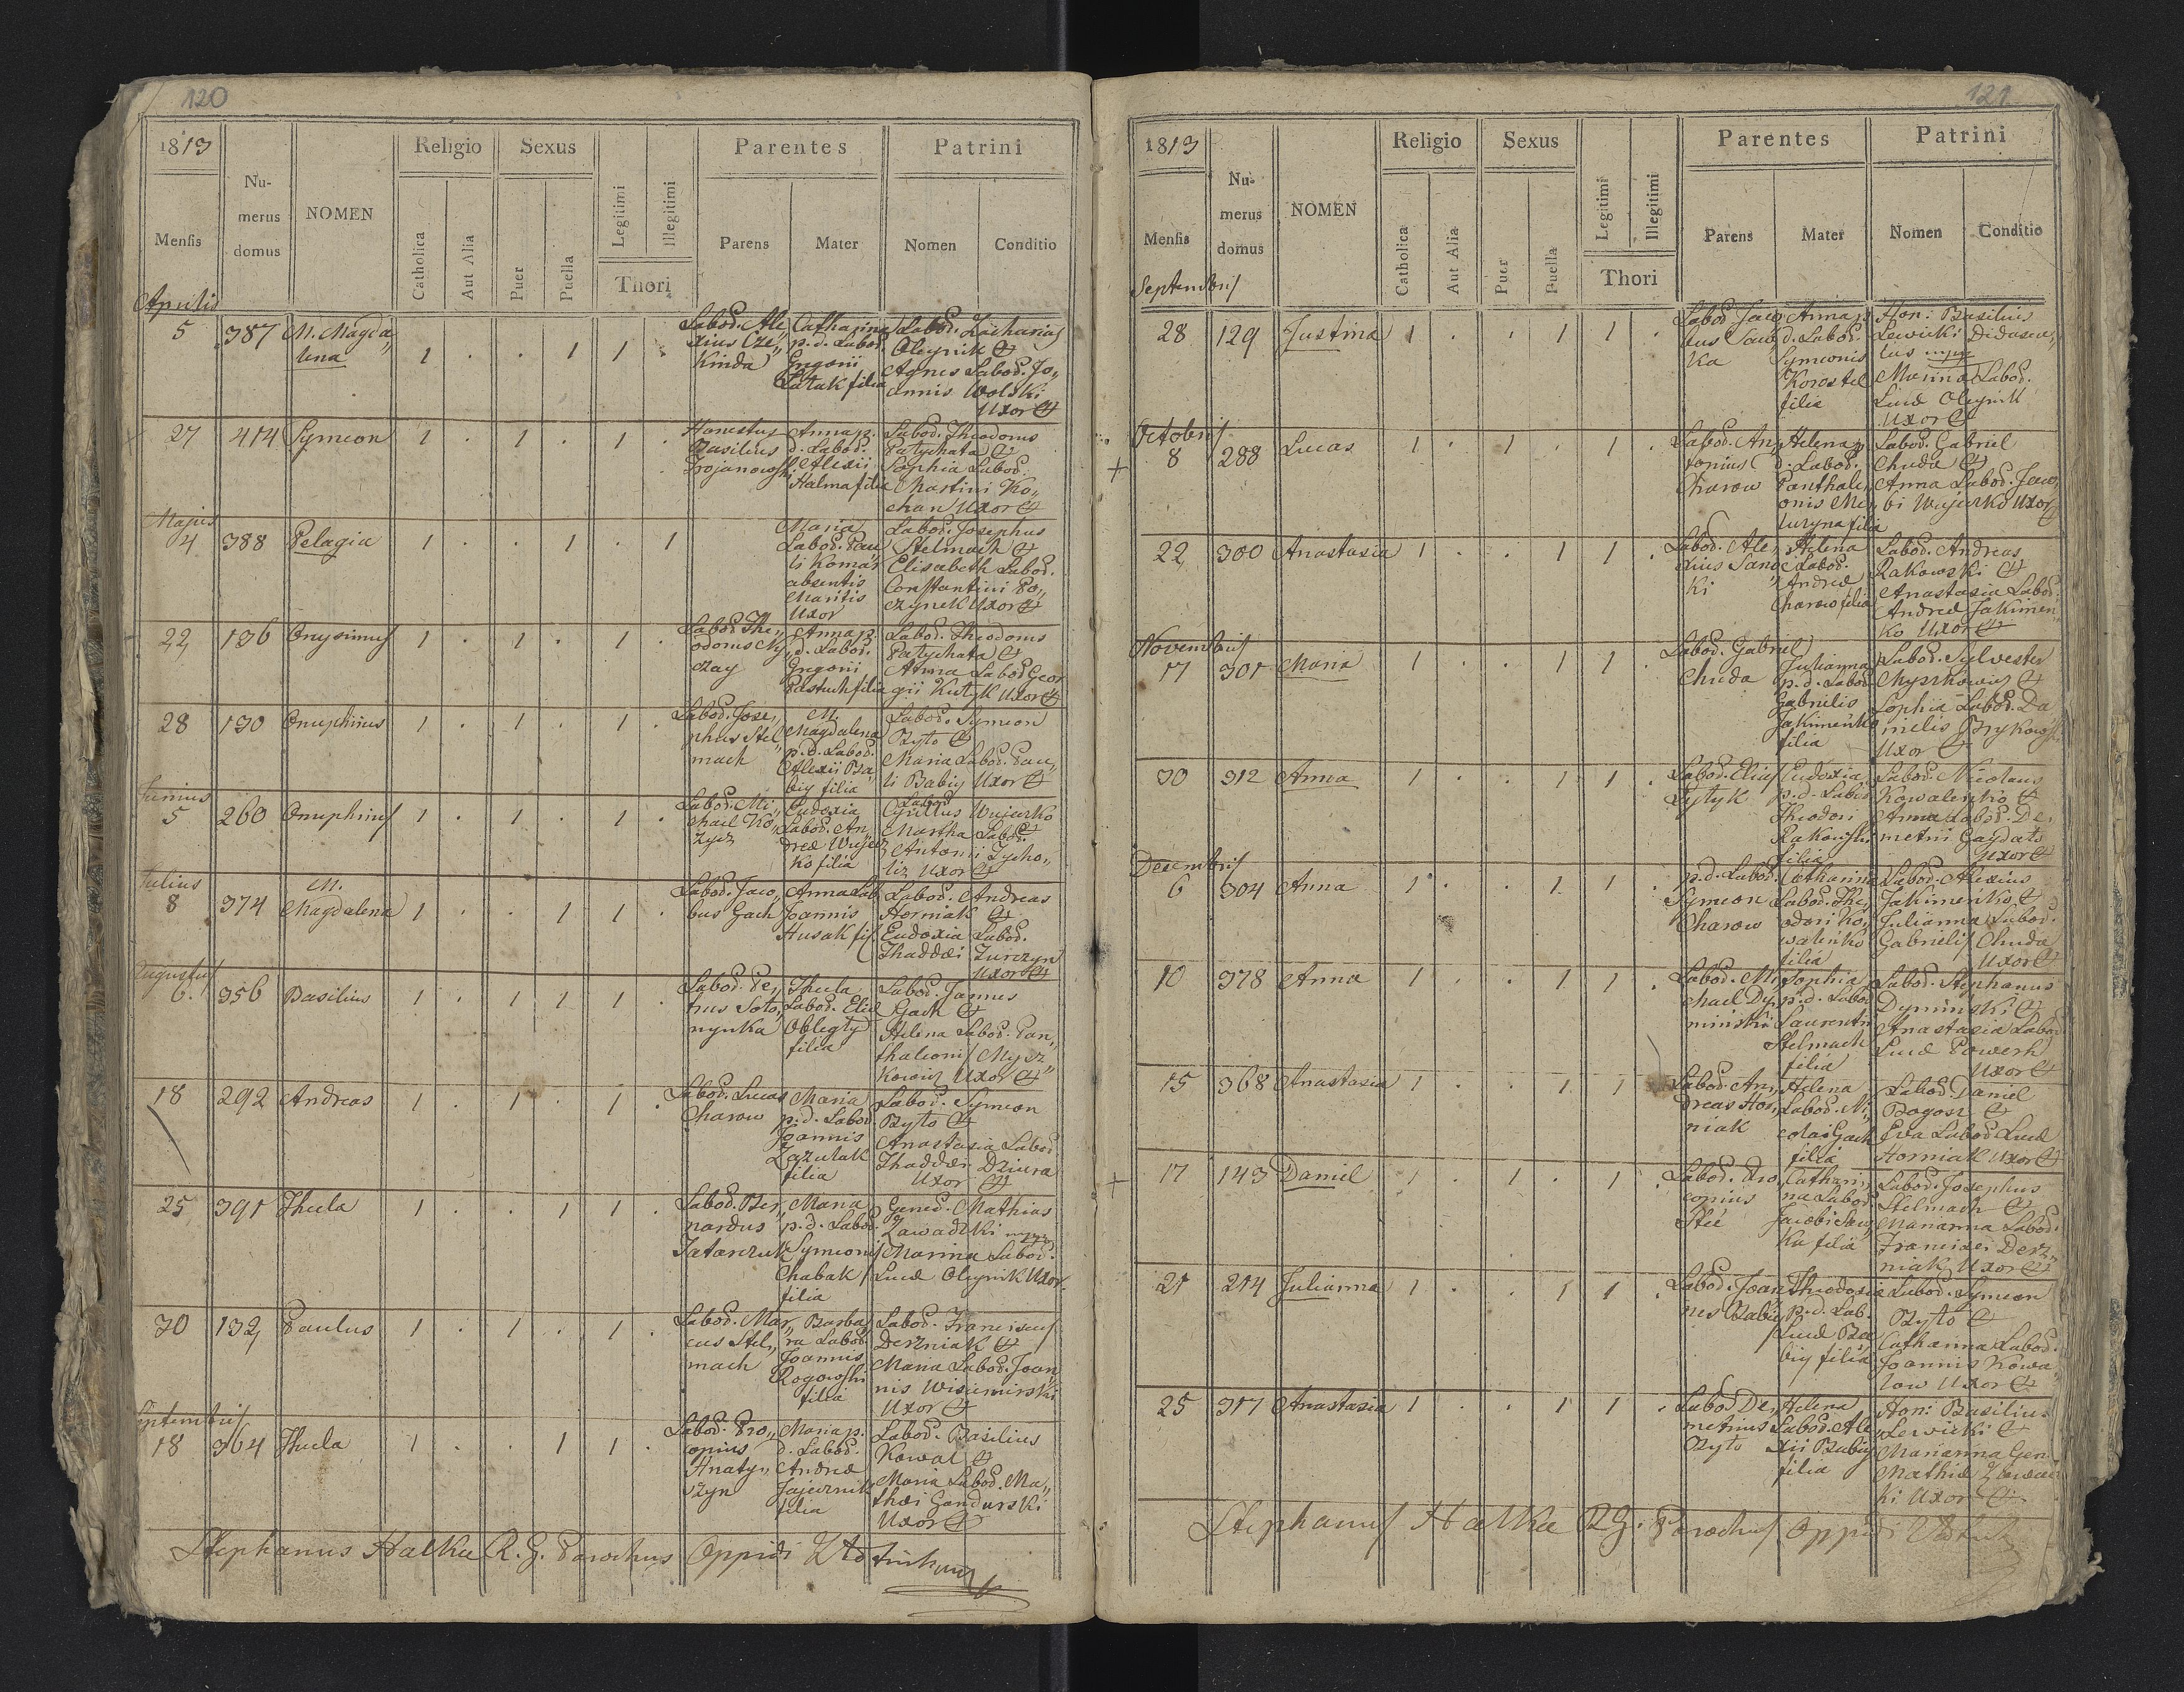 120
1813
Nu-
merus
domus
NOMEN
Religio
Sexus
Legitimi
Illegitimi
Parentes
Patrini
Mensis
Catholica
Aut Alia
Puer
Puella
Thori
Parens
Mater
Nomen
Conditio
Aprilis
5 387 M. Magda„
lena
1 . . 1 1 .
Labod. Ale„
xius Cze„
kinda
Catharina
p.d. Labod.
Gregorii
Lutak filia
Labod. Zacharias
Oleynik
Agnes Labod. Jo„
annis Wolski
Uxor
27 414 Symeon 1 . 1 . 1 .
Honestus
Basilius
Trojanowski
Anna p.
d. Labod.
Alexii
Halma filia
Labod. Theodorus
Patychata
Sophia Labod.
Martini Ko„
chan Uxor
Majus
4 388 Pelagia 1 . . 1 . 1
Maria
Labod. Pau„
li Komar
absentis
Maritis
Uxor
Labod. Josephus
Stelmach
Elisabeth Labod.
Constantini Po„
czynek Uxor
22 136 Onysimus 1 . 1 . 1 .
Labod. The„
odorus Ny„
czay
Anna p.
d. Labod.
Gregorii
Pastuch filia
Labod. Theodorus
Patychata
Anna Labod. Geor
gii Kutyk Uxor
28 130 Onuphrius 1 . 1 . 1 .
Labod. Jose„
phus Stel„
mach
M.
Magdalena
p.d. Labod.
Alexii Ba„
biy filia
Labod. Symeon
Byto
Maria Labod. Pau„
li Babiy Uxor
Junius
5 260 Onuphrius 1 . 1 . 1 .
Labod. Mi„
chael Ko„
zycz
Eudoxia
Labod. An„
dreæ Wujec
ko filia
Labod.
Cyrillus Wujecko
Martha Labod.
Antonii Zycho„
liz Uxor
Julius
8 374 M.
Magdalena 1 . . 1 1 .
Labod. Jaco„
bus Gach
Anna Lab.
Joannis
Husak fil.
Labod. Andreas
Horniak
Eudoxia Labod.
Thaddæi Zurczyn
Uxor
Augustus
6. 356 Basilius 1 . 1 1 1 .
Labod. Pe„
trus Soto„
nynka
Thecla
Labod. Eliæ
Obleglty
filia
Labod. Joannes
Gach
Helena Labod. Pan„
thaleonis Mysz„
kowicz Uxor
18 292 Andreas 1 . 1 . 1 .
Labod. Lucas
Charow
Maria
p.d. Labod.
Joannis
Zazulak
filia
Labod. Symeon
Byto
Anastasia Labod.
Thaddæi Dziura
Uxor
25 391 Thecla 1 . . 1 1 .
Labod. Ber„
nardus
Tatarczuk
Maria
p.d. Labod.
Symeonis
Chabak
filia
Gened. Mathias
Zawadzki mpp
Marina Labod.
Lucæ Oleynik Uxor
30 132 Paulus 1 . 1 . 1 .
Labod. Mar„
cus Stel„
mach
Barba„
ra Labod.
Joannis
Rogowski
filia
Labod. Franciscus
Derzniak
Maria Labod. Joan„
nis Wiszmirski
Uxor
Septembris
18 364 Thecla 1 . . 1 1 .
Labod. Pro„
copius
Hnaty„
szyn
Maria p.
d. Labod.
Andreæ
Jajecznik
filia
Labod. Basilius
Kowal
Maria Labod. Ma„
thæi Gandurski
Uxor
Stephanus Halka R. G. Parochus Oppidi
121
1813
Nu-
merus
domus
NOMEN
Religio
Sexus
Legitimi
Illegitimi
Parentes
Patrini
Mensis
Catholica
Aut Alia
Puer
Puella
Thori
Parens
Mater
Nomen
Conditio
Septembris
28 129 Justina 1 . . 1 1 .
Labod. Jaco
bus Saw
ka
Anna p.
d. Labod.
Symeonis
Korostel
filia
Hon: Basilius
Lewicki Didascu„
lus mpp
Marina Labod.
Lucæ Oleynik
Uxor
Octobris
8 288 Lucas 1 . 1 . 1 .
Labod. An„
tonius
Charow
Helena p.
d. Labod.
Panthale„
onis Me„
luzyna filia
Labod. Gabriel
Chuda
Anna Labod. Jaco„
bi Wujecko Uxor
22 300 Anastasia 1 . . 1 1 .
Labod. Ale„
xius Sanec
ki
Helena
Labod.
Andreæ
Charow filia
Labod. Andreas
Rakowski
Anastasia Labod.
Andreæ Jakimen
ko Uxor
Novembris
17 301 Maria 1 . . 1 1 .
Labod. Gabriel
Chuda
Julianna
p.d. Labod.
Gabrielis
Jakimenko
filia
Labod. Sylvester
Myszkowicz
Sophia Labod. Da
nielis Brykowski
Uxor
30 312 Anna 1 . . 1 1 .
Labod. Elias
Lytyk
Eudoxia
p.d. Labod.
Theodori
Rakowski
filia
Labod. Nicolaus
Kowalenko
Anna Labod. De„
metrii Gaydat
Uxor
Decembris
6 304 Anna 1 . . 1 1 .
p.d. Labod.
Symeon
Charow
Catharina
Labod. The„
odori Ko„
walenko
filia
Labod. Alexius
Jakimenko
Julianna Labod.
Gabrielis Chuda
Uxor
10 378 Anna 1 . . 1 1 .
Labod. Mi„
chael Dy„
minski
Sophia
p.d. Labod.
Laurentii
Stelmach
filia
Labod. Stephanus
Dyminski
Anastasia Labod.
Lucæ Powerh
Uxor
15 368 Anastasia 1 . . 1 1
Labod. An„
dreas Hor„
niak
Helena
Labod. Ni„
colai Gach
filia
Labod. Daniel
Bogosz
Eva Labod. Lucæ
Horniak Uxor
17 143 Daniel 1 . 1 . 1 .
Labod. Pro„
copius
Steć
Cathari„
na Labod.
Jacobi Saw„
ka filia
Labod. Josephus
Stelmach
Marianna Labod.
Francisci Derz„
niak Uxor
21 214 Julianna 1 . . 1 1 .
Labod. Joan
nes Babiy
Theodosia
p.d. Lab.
Lucæ Ba
biy filia
Labod. Symeon
Byto
Catharina Labod.
Joannis Kowa
low Uxor
25 317 Anastasia 1 . . 1 1 .
Labod De„
metrius
Byto
Helena
Labod. Ale„
xii Babiy
filia
Hon: Basilius
Lewicki
Marianna Gen.
Mathiæ Zawadz
ki Uxor
Stephanus Halka R G. Parochus Oppidi